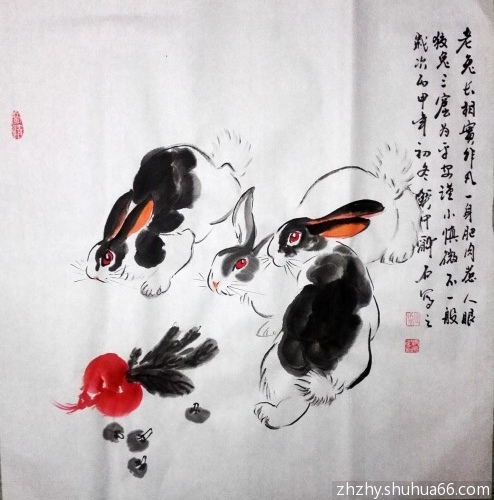 老兔长相實非凡一身肥肉惹人眼
狡兔三窟为平安谨小慎微不一般
歲次丙申年初冬石写之
zhzhy.shuhua66.com